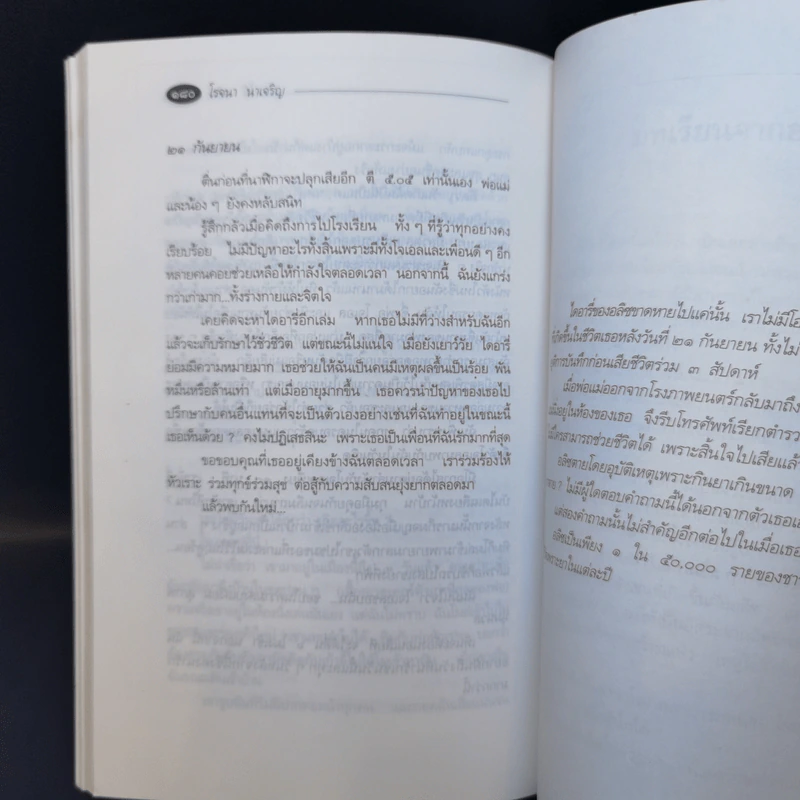 ๑๘๐ โรจนา นาเจริญ
๒๑ กันยายน
ตื่นก่อนที่นาฬิกาจะปลุกเสียอีก ตี ๕.๐๕ เท่านั้นเอง พ่อแม่
และน้อง ๆ ยังคงหลับสนิท
รู้สึกกลัวเมื่อคิดถึงการไปโรงเรียน ทั้ง ๆ ที่รู้ว่าทุกอย่างคง
เรียบร้อย ไม่มีปัญหาอะไรทั้งสิ้นเพราะมีทั้งโจเอลและเพื่อนดี ๆ อีก
หลายคนคอยช่วยเหลือให้กำลังใจตลอดเวลา นอกจากนี้ ฉันยังแกร่ง
กว่าเก่ามาก...ทั้งร่างกายและจิตใจ
เคยคิดจะหาไดอารี่อีกเล่ม หากเธอไม่มีที่ว่างสำหรับฉันอีก
แล้วจะเก็บรักษาไว้ชั่วชีวิต แต่ขณะนี้ไม่แน่ใจ เมื่อยังเยาว์วัย ไดอารี่
ย่อมมีความหมายมาก เธอช่วยให้ฉันเป็นคนมีเหตุผลขึ้นเป็นร้อย พัน
หมื่นหรือล้านเท่า แต่เมื่ออายุมากขึ้น เธอควรนำปัญหาของเธอไป
ปรึกษากับคนอื่นแทนที่จะเป็นตัวเองอย่างเช่นที่ฉันทำอยู่ในขณะนี้
เธอเห็นด้วย ? คงไม่ปฏิเสธสินะ เพราะเธอเป็นเพื่อนที่ฉันรักมากที่สุด
ขอขอบคุณที่เธออยู่เคียงข้างฉันตลอดเวลา เราร่วมร้องไห้
หัวเราะ ร่วมทุกข์ร่วมสุข ต่อสู้กับความสับสนยุ่งยากตลอดมา
แล้วพบกันใหม่...
ไดอารี่ของอลิซขาดหายไปแค่นั้น เราไม่มีโอ
เกิดขึ้นในชีวิตเธอหลังวันที่ ๒๑ กันยายน ทั้งไม่
การบันทึกก่อนเสียชีวิตร่วม ๓ สัปดาห์
เมื่อพ่อแม่ออกจากโรงภาพยนตร์กลับมาถึง
อยู่ในห้องของเธอ จึงรีบโทรศัพท์เรียกตำรว
สามารถช่วยชีวิตได้ เพราะสิ้นใจไปเสียแล้
อลิซตายโดยอุบัติเหตุเพราะกินยาเกินขนาด
? ไม่มีผู้ใดตอบคำถามนี้ได้นอกจากตัวเธอเ
แต่สองคำถามนั้นไม่สำคัญอีกต่อไปในเมื่อเธอ
อลิซเป็นเพียง ๑ ใน ๕๐,๐๐๐ รายของชา
เพราะยาในแต่ละปี